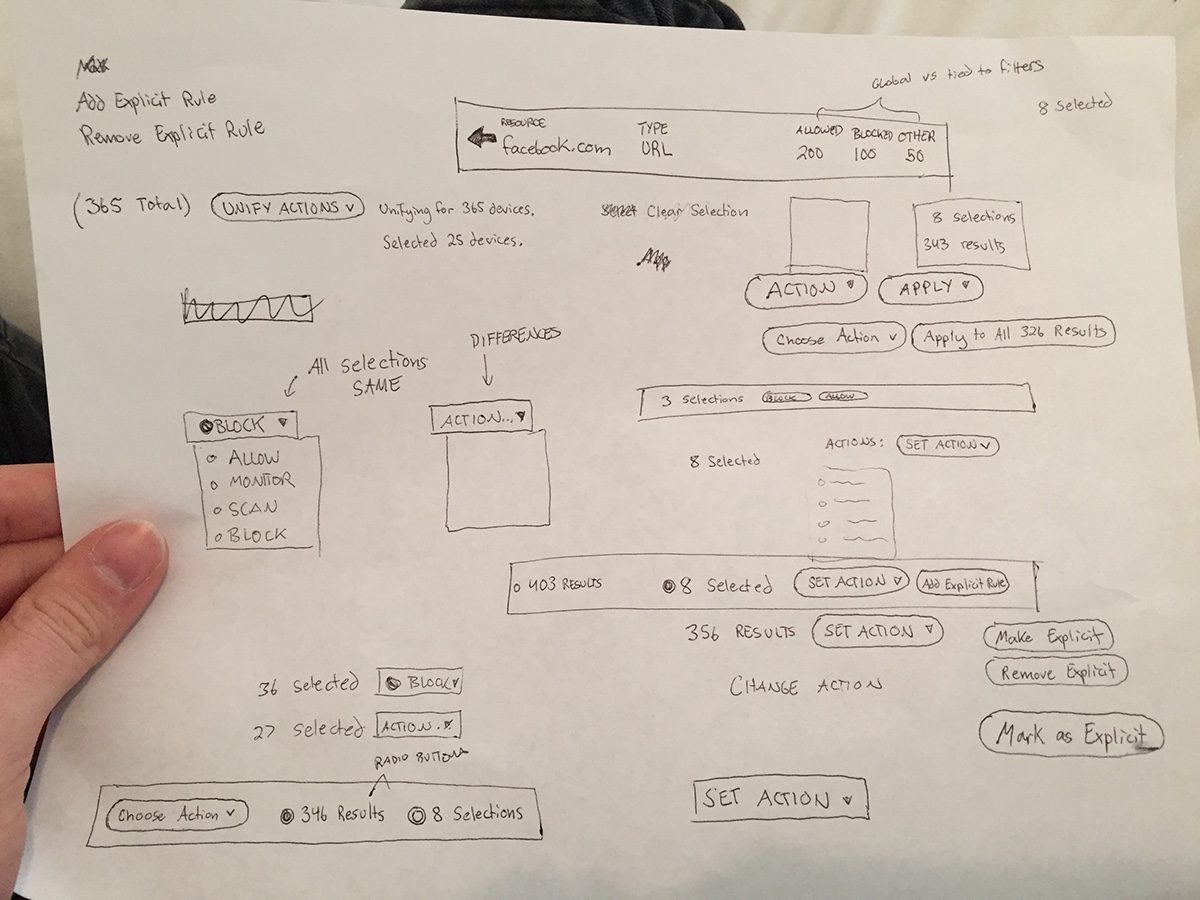 Add Explicit Rule
Remove Explicit Rule
Global vs tied to filters
8 Selected
RESOURCE
facebook.com
TYPE
URL
ALLOWED BLOCKED OTHER
200 100 50
(365 Total)
UNIFY ACTIONS
Unifying for 365 devices.
Selected 25 devices.
Clear Selection
8 selections
343 results
ACTION
APPLY
Choose Action
Apply to All 326 Results
All selections
SAME
DIFFERENCES
BLOCK
ALLOW
MONITIOR
SCAN
BLOCK
ACTION...
3 Selections BLOCK ALLOW
8 Selected
ACTIONS: SET ACTION
403 RESULTS
8 Selected
SET ACTION
Add Explicit Rule
356 RESULTS SET ACTION
Make Explicit
Remove Explicit
CHANGE ACTION
Mark as Explicit
36 selected BLOCK
27 selected ACTION..
RADIO BUTTONS
Choose Action
346 Results
8 Selections
SET ACTION